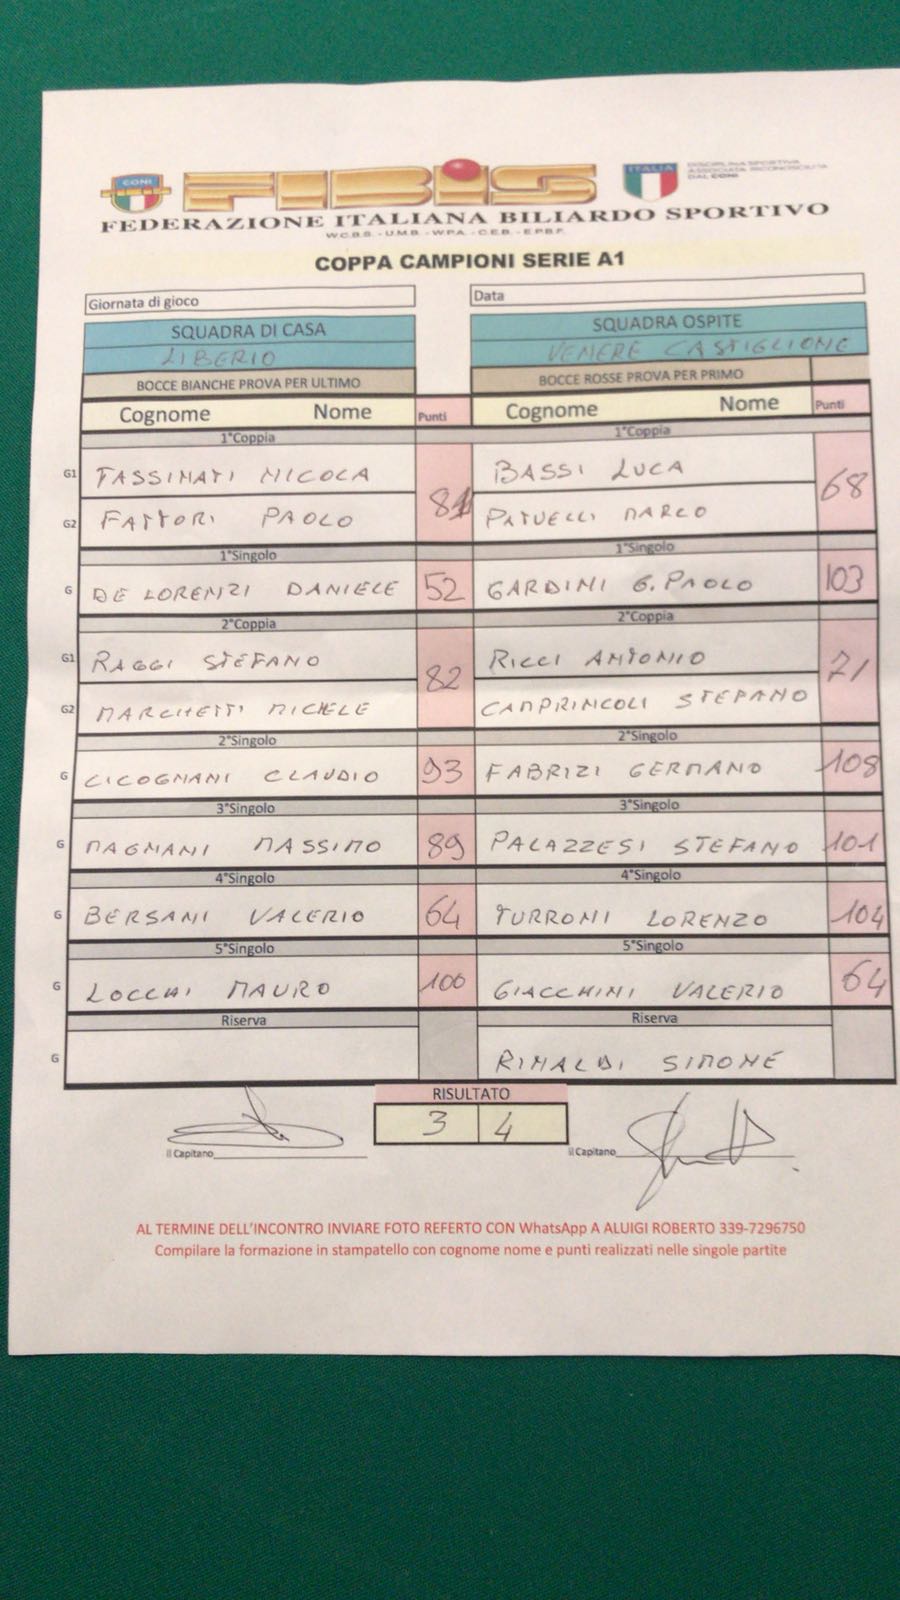 CONI
FIBiS
ITALIA
DISCIPLINA SPORTIVA
ASSOCIATA RICONOSCIUTA
DAL CONI
FEDERAZIONE ITALIANA BILIARDO SPORTIVO
W.C.B.S. - U.M.B. - W.P.A. - C.E.B. - E.P.B.F.
COPPA CAMPIONI SERIE A1
Giornata di gioco Data
SQUADRA DI CASA SQUADRA OSPITE
LIBERIO VENERE CASTIGLIONE
BOCCE BIANCHE PROVA PER ULTIMO BOCCE ROSSE PROVA PER PRIMO
Cognome Nome Punti Cognome Nome Punti
1°Coppia 1°Coppia
G1 FASSINATI NICOLA BASSI LUCA
81 68
G2 FATTORI PAOLO PATUELLI MARCO
1°Singolo 1°Singolo
G DE LORENZI DANIELE 52 GARDINI G.PAOLO 103
2°Coppia 2°Coppia
G1 RAGGI STEFANO RICCI ANTONIO
82 71
G2 MARCHETTI MICHELE CAMPRINCOLI STEFANO
2°Singolo 2°Singolo
G CICOGNANI CLAUDIO 93 FABRIZI GERMANO 108
3°Singolo 3°Singolo
G MAGNANI MASSIMO 89 PALAZZESI STEFANO 101
4°Singolo 4°Singolo
G BERSANI VALERIO 64 TURRONI LORENZO 104
5°Singolo 5°Singolo
G LOCCHI MAURO 100 GIACCHINI VALERIO 64
Riserva Riserva
G RINALDI SIMONE
RISULTATO
3 4
il Capitano il Capitano
AL TERMINE DELL'INCONTRO INVIARE FOTO REFERTO CON WhatsApp A ALUIGI ROBERTO 339-7296750
Compilare la formazione in stampatello con cognome nome e punti realizzati nelle singole partite